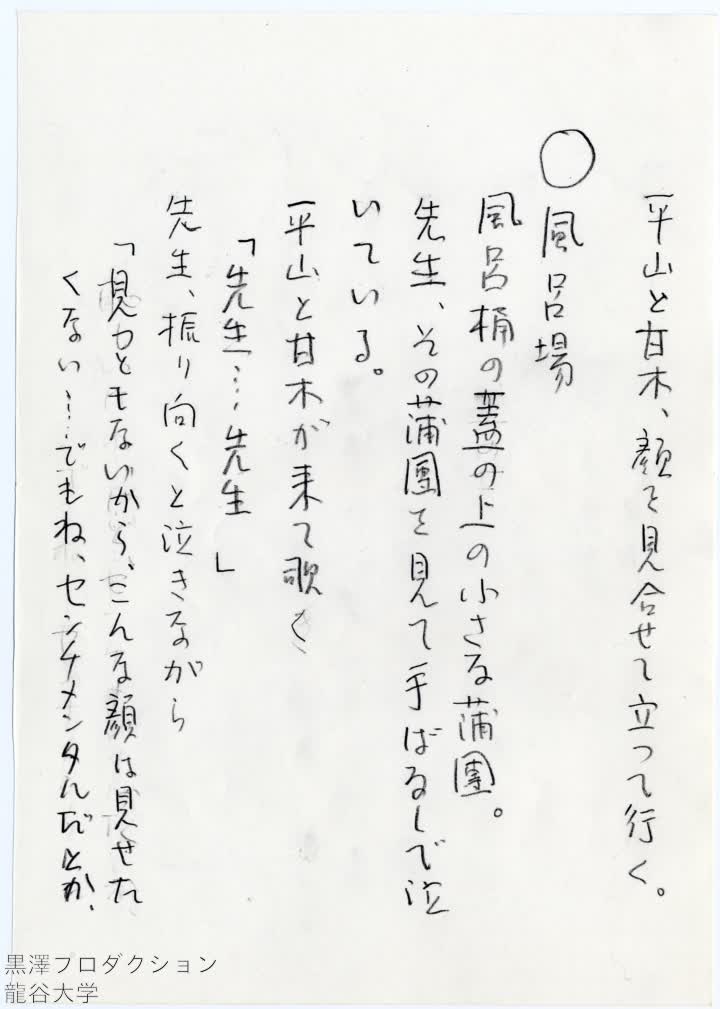 平山と甘木、顔を見合せて立って行く。
○風呂場
風呂桶の蓋の上の小さな蒲團。
先生、その蒲團を見て手ばなしで泣
いている。
平山と甘木が来て覗く
「先生…先生」
先生、振り向くと泣きながら
「見っともないから、こんな顔は見せた
くない…でもね、センチメンタルだとか、
黒澤プロダクション
龍谷大学